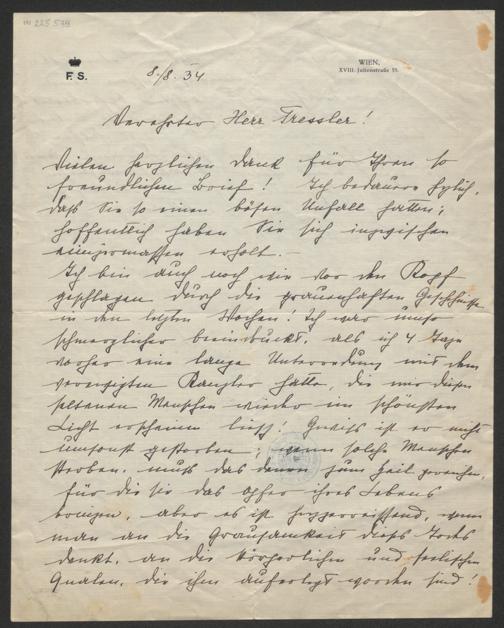 IN 225 574
F. S.
WIEN,
XVIII. Julienstraße
8./8. 34
Verehrter Herr Tressler!
Vielen herzlichen Dank für Ihren so
freundlichen Brief! Ich bedauere
daß Sie so einen bösen Unfall hatten;
hoffentlich haben Sie sich inzwischen
einigermassen erholt. –
Ich bin auch noch wie vor den Kopf
geschlagen durch die grauenhaften Geschehnisse
in den letzten Wochen! Ich war umso
schmerzlicher beeindruckt, als ich 4 Tage
vorher eine lange Unterredung mit dem
verewigten Kanzler hatte, die mir diesen
seltenen Menschen wieder im schönsten
Licht erscheinen liess! Gewiss ist er nicht
umsonst gestorben; wenn solche Menschen
sterben, muss das denen zum Heil gereichen,
für die sie das Opfer ihres Lebens
bringen, aber es ist herzzerreissend, wenn
man an die Grausamkeit dieses Todes
denkt, an die körperlichen und seelischen
Qualen, die ihm auferlegt worden sind!